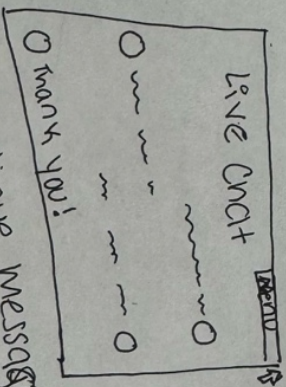 Menu
Live Chat
Thank you!
Message